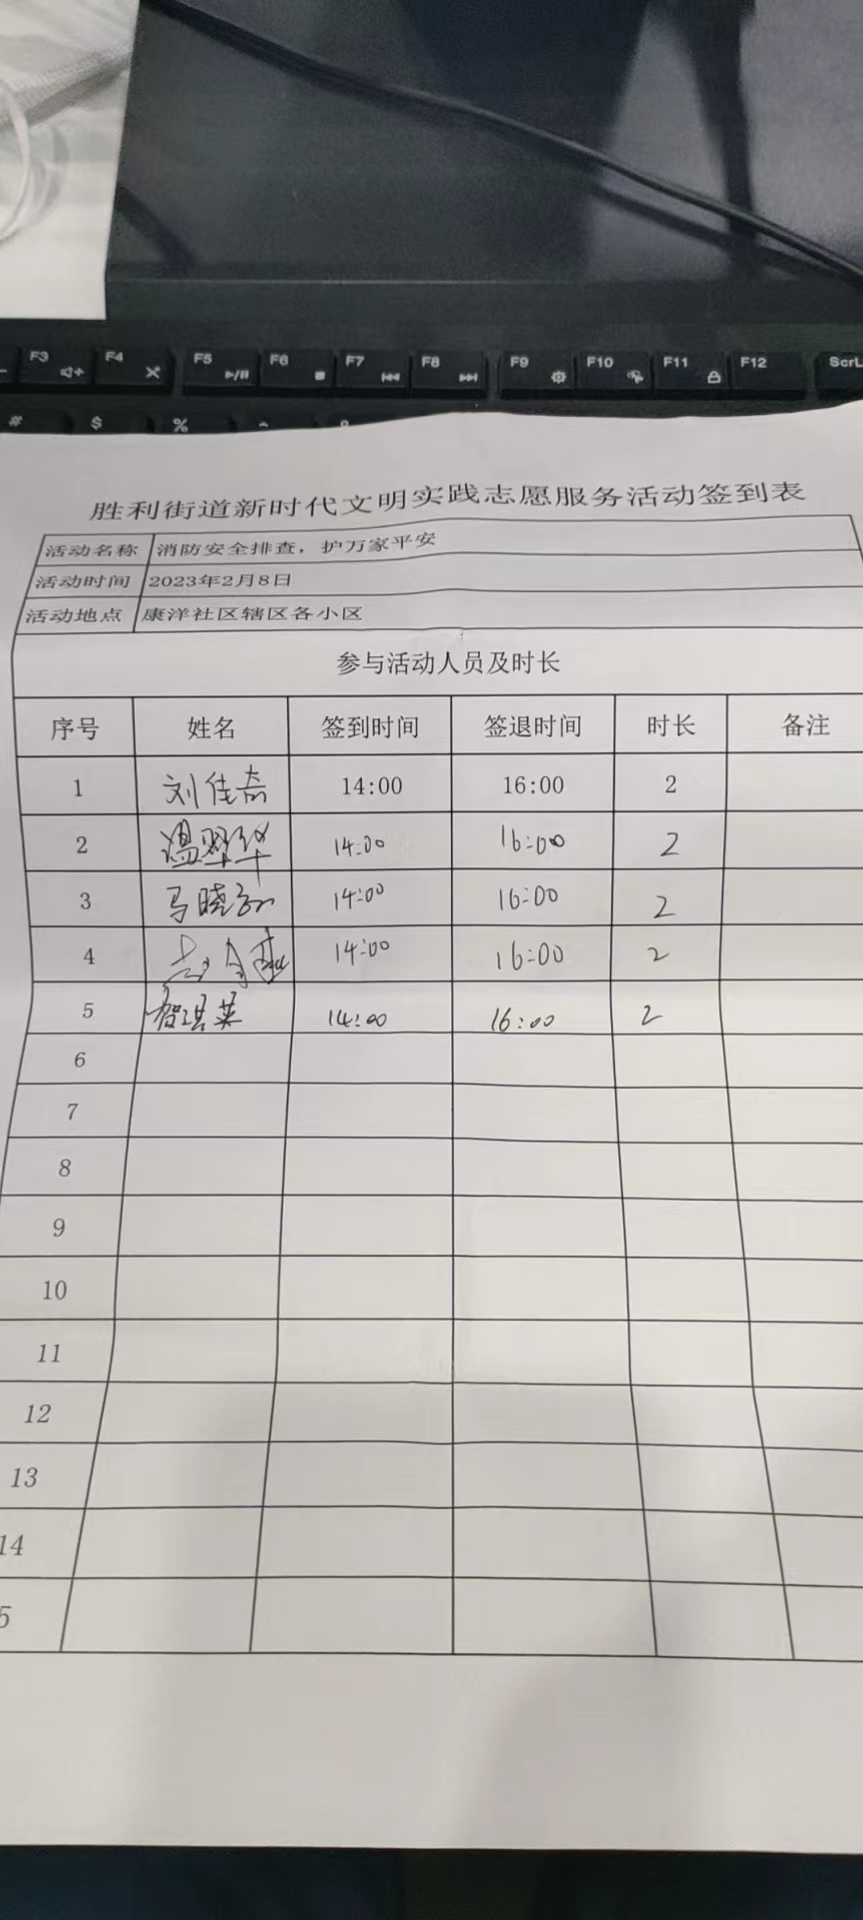 F3 F4 F5 F6 F7 F8 F9 F10 F11 F12 ScrL
# $ %
胜利街道新时代文明实践志愿服务活动签到表
活动名称 消防安全排查，护万家平安
活动时间 2023年2月8日
活动地点 康洋社区辖区各小区
参与活动人员及时长
序号 姓名 签到时间 签退时间 时长 备注
1 刘佳奇 14:00 16:00 2
2 温翠华 14:00 16:00 2
3 马晓 14:00 16:00 2
4 14:00 16:00 2
5 14:00 16:00 2
6
7
8
9
10
11
12
13
14
5